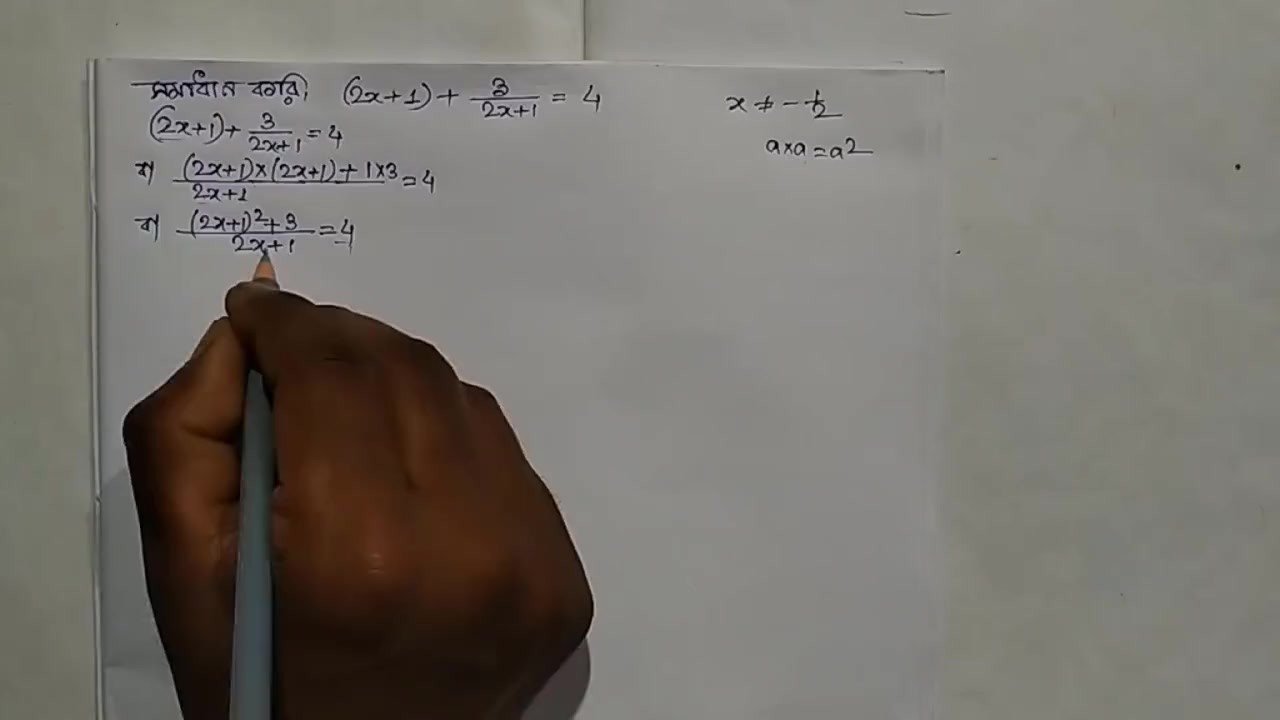 সমাধান করি। (2x+1) + 3/(2x+1) = 4
x ≠ -1/2
(2x+1) + 3/(2x+1) = 4
a×a = a²
বা ((2x+1)×(2x+1) + 1×3)/(2x+1) = 4
বা ((2x+1)² + 3)/(2x+1) = 4